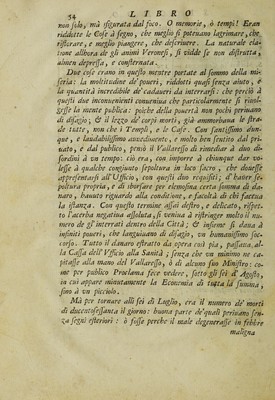 54 LIBRO
non solo, mà sfigurata dal foco. O memorie, ò tempi! Eran
riddotte le Cose à segno, che meglio si potevano lagrimare, che
ristorare, e meglio piangere, che descrivere. La naturale cla-
tione allhora de gli animi Veronesi, si vidde se non distrutta,
almen depressa, e consternata.
Due cose erano in questo mentre portate al sommo della mise-
ria: la moltitudine de' poveri, ridotti quasi senza aiuto, e
la quantità incredibile de' cadaveri da interrarsi: che perciò à
questi due inconvenienti conveniva che particolarmente si rivol-
gesse la mente publica: poiche della povertà non pochi perivano
di disagio; & il lezzo de' corpi morti, già ammorbava le stra-
de tutte, non che i Templi, e le Case. Con santissimo dun-
que, e laudabilissimo avvedimento, e molto ben sentito dal pri-
vato, e dal publico, pensò il Vallaresso di rimediar à duo di-
sordini à vn tempo: ciò era, con imporre à chiunque dar vo-
lesse à qualche congiunto sepoltura in loco sacro, che dovesse
appresentarsi all'Vfficio, con questi duo requisiti, d'haver se-
poltura propria, e di sborsare per elemosina certa somma di da-
naro, havuto riguardo alla conditione, e facoltà di chi faceva
la istanza. Con questo termine assai destro, e delicato, rispet-
to l'acerba negativa assoluta, si veniva à ristringer molto il nu-
mero de gl'interrati dentro della Città; & insieme si dava à
infiniti poveri, che languivano di disagio, vn humanissimo soc-
corso. Tutto il danaro estratto da opera così pia, passava al-
la Cassa dell'Vfficio alla Sanità; senza che vn minimo ne ca-
pitasse alla mano del Vallaresso, ò di alcuno suo Ministro: co-
me per publico Proclama fece vedere, fatto gli sei d'Agosto,
in cui appare minutamente la Economia di tutta la summa,
sino à vn picciolo.
Mà per tornare alli sei di Luglio, era il numero de' morti
di ducentosessanta il giorno: buona parte de' quali perivano sen-
za segni esteriori: ò fosse perche il male degenerasse in febbre
maligna